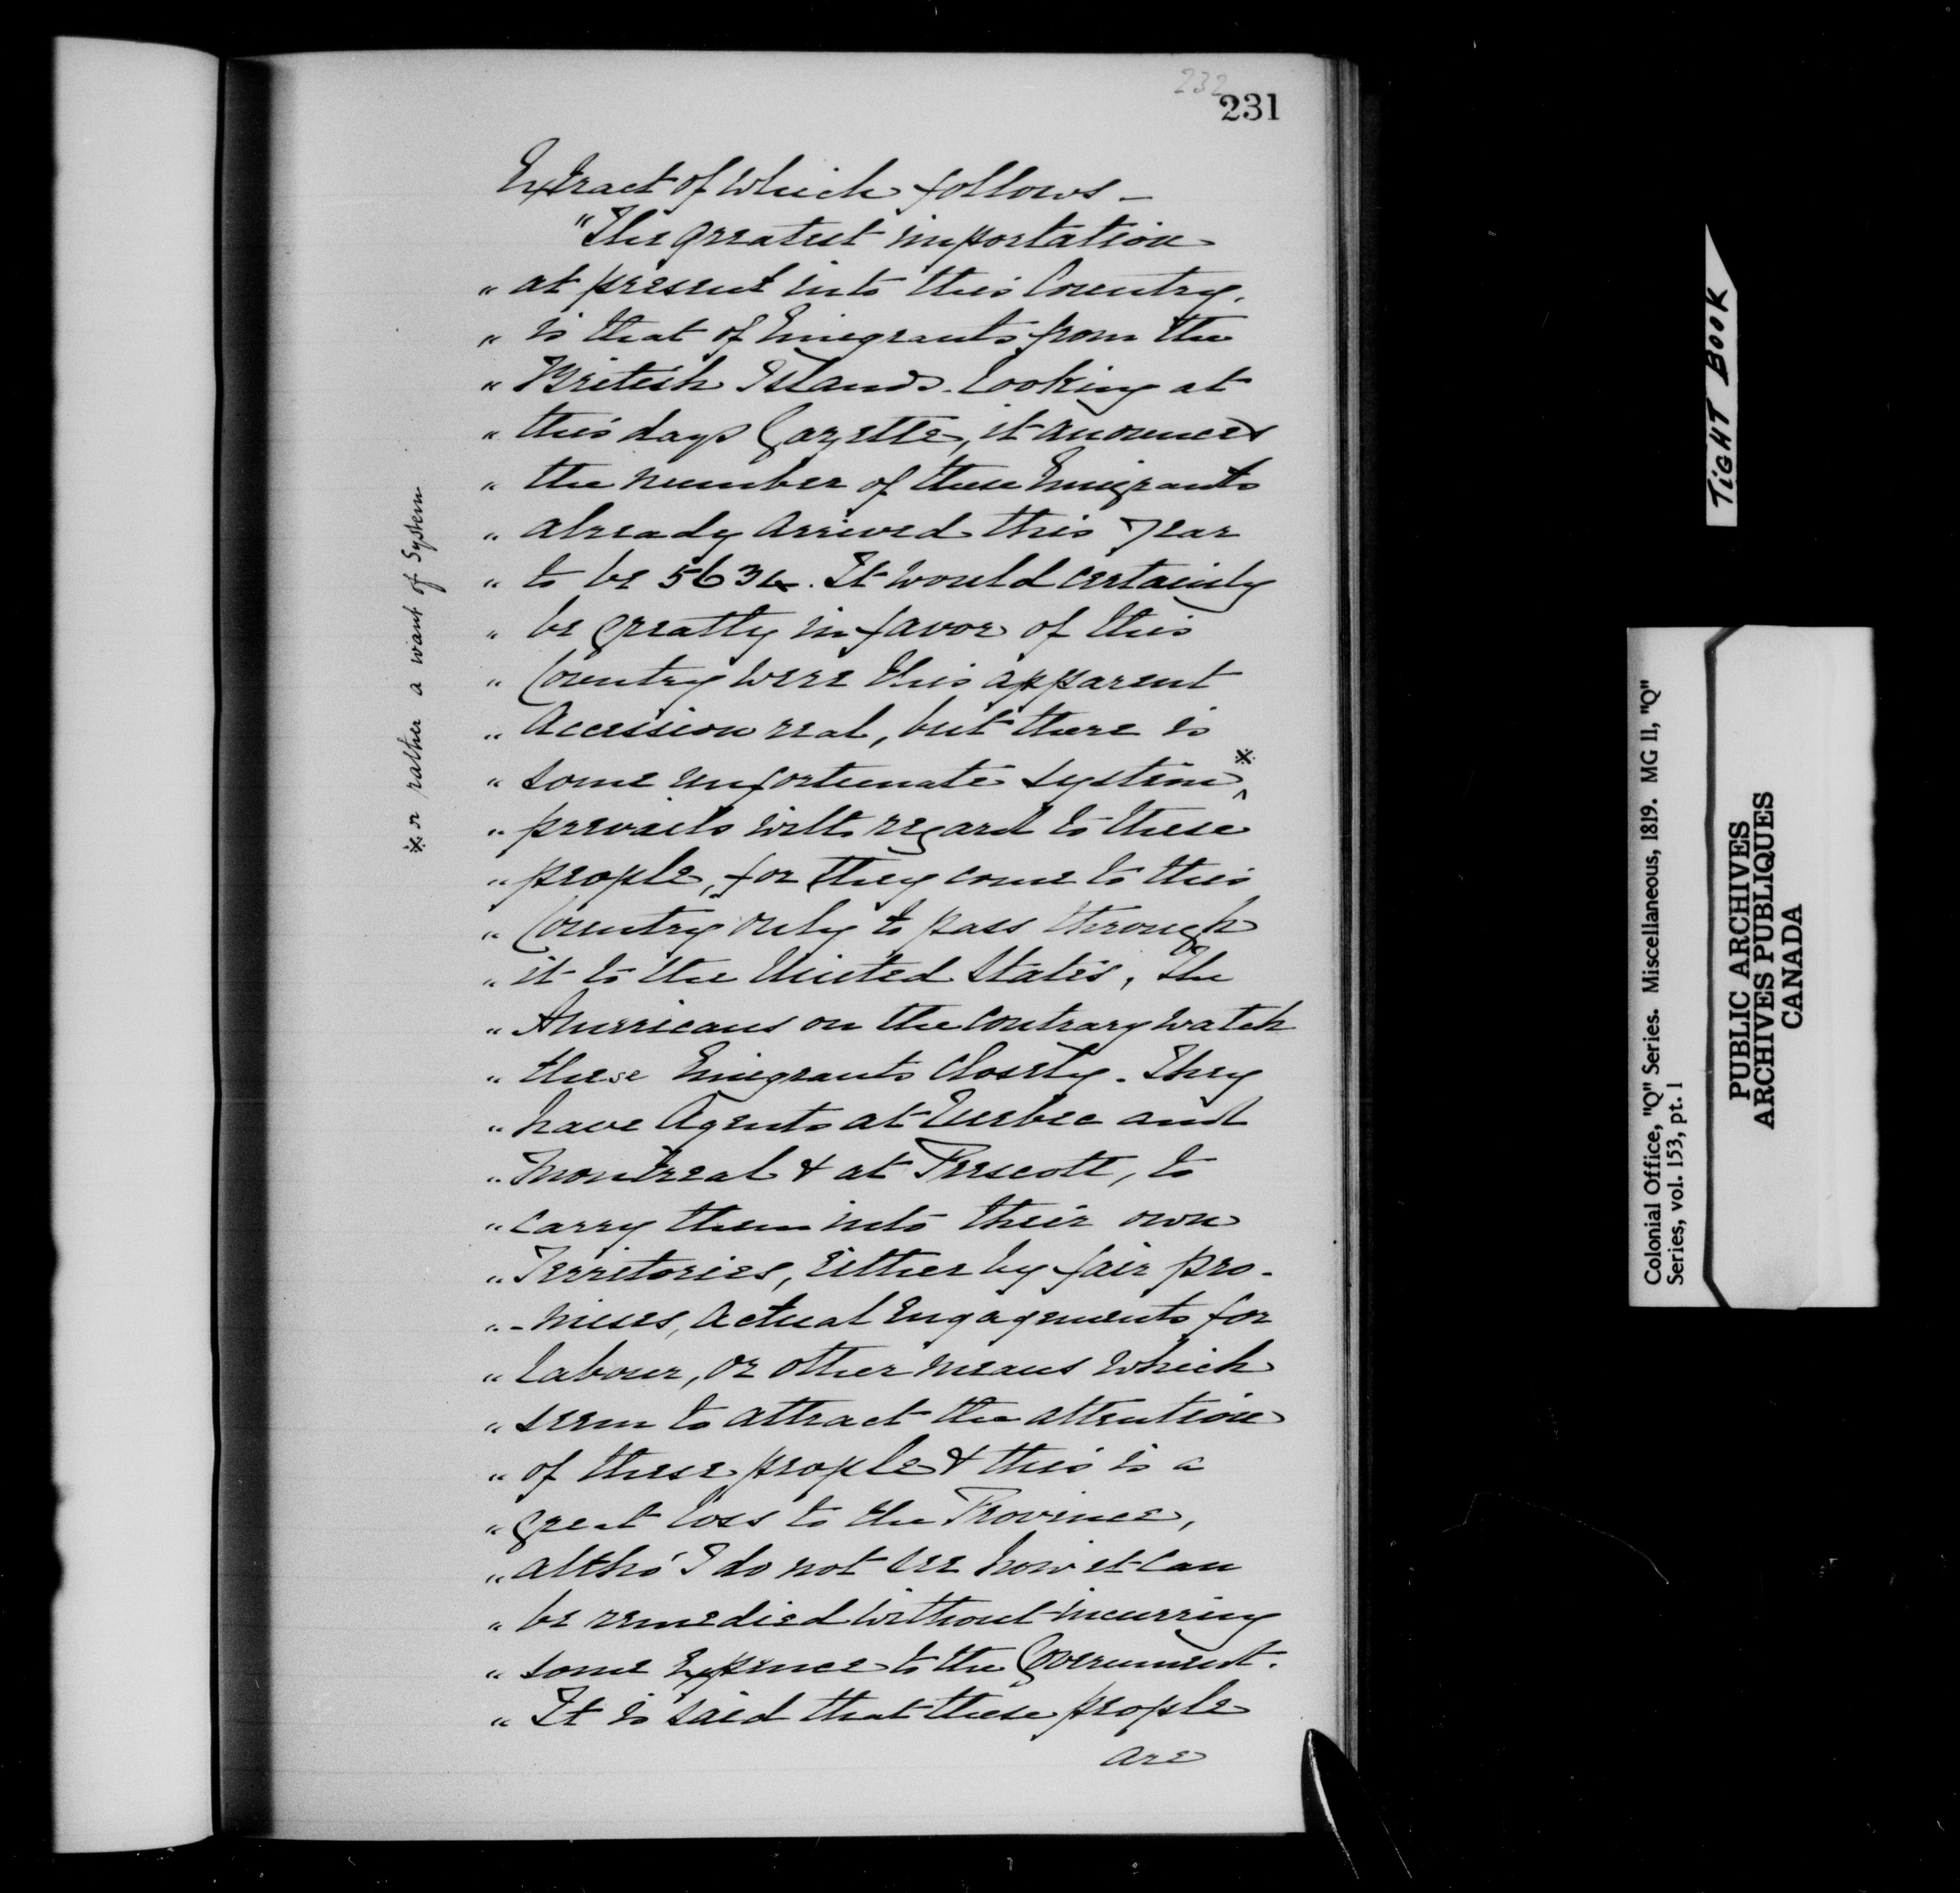 232
231
Extract of which follows –
"The greatest importation
" at present into this Country,
" is that of Emigrants from the
" British Islands. Looking at
" this days Gazette, it anounces
" the number of these Emigrants
" already arrived this year
" to be 5634. It would certainly
" be greatly in favor of this
" Country were this apparent
" Accession real, but there is
" some unfortunate system ※
" prevails with regard to these
" people, for they come to this
" Country only to pass through
" it to the United States, The
" Americans on the contrary watch
" these Emigrants Closely. They
" have Agents at Quebec and
" Montreal & at Prescott, to
" carry them into their own
" Territories, Either by fair pro-
" -mises, actual Engagements for
" labour, or other means which
" seem to attract the attention
" of these people & this is a
" great loss to the Province,
" altho' I do not see how it can
" be remedied without incurring
" some Expence to the Government.
" It is said that these people
are
※ or rather a want of System
TIGHT BOOK
Colonial Office, "Q" Series. Miscellaneous, 1819. MG 11, "Q"
Series, vol. 153, pt. 1
PUBLIC ARCHIVES
ARCHIVES PUBLIQUES
CANADA